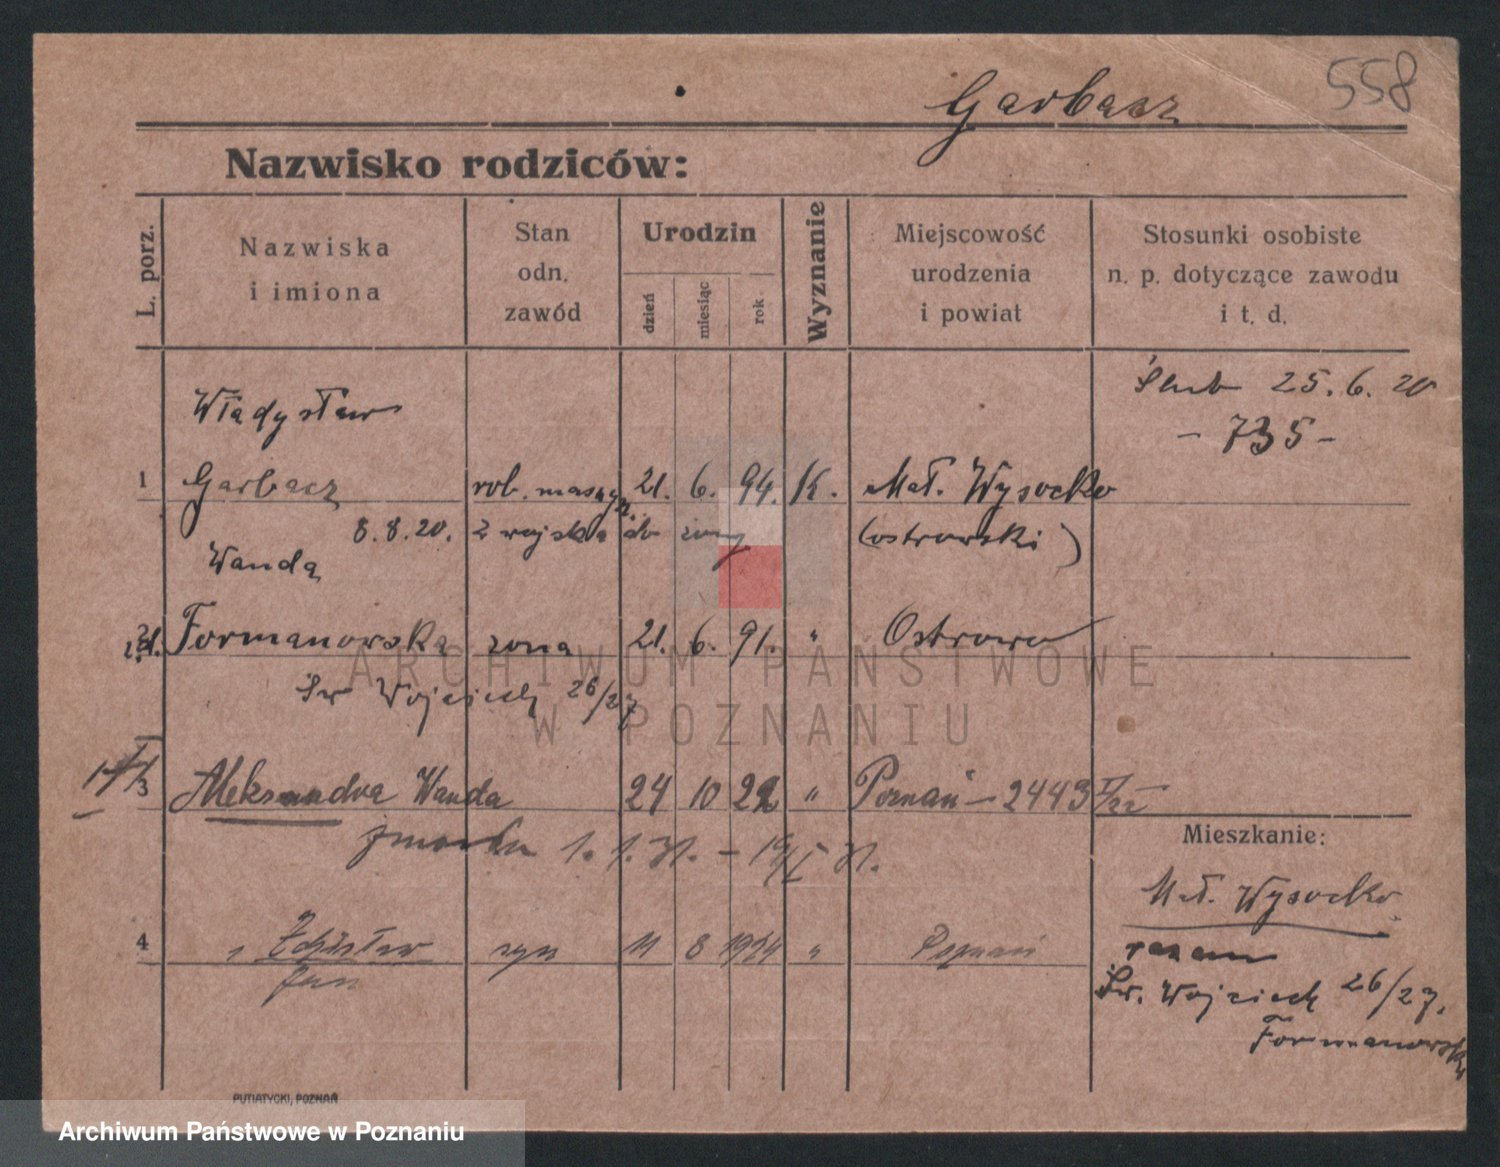 558
Garbacz
Nazwisko rodziców:
L. porz.
Nazwiska
i imiona
Stan
odn.
zawód
Urodzin
dzień
miesiąc
rok
Wyznanie
Miejscowość
urodzenia
i powiat
Stosunki osobiste
n. p. dotyczące zawodu
i t. d.
Ślub 25. 6. 20
- 735 -
Władysław
1 Garbacz rob. 21. 6. 94. K. Mał. Wysocko
8. 8. 20. z wojska do żony (ostrowski)
Wanda
Formanowska żona 21. 6. 91. " Ostrowo
Św Wojciech 26/27
3 Aleksandra Wanda 24 10 22 " Poznań - 2443
zmarła 1. 1. 31. -
Mieszkanie:
Mał. Wysocko
4 Zdzisław syn 11 8 1924 " Poznań
Jan
razem
Św. Wojciech 26/27.
Formanowski
PUTIATYCKI, POZNAŃ
ARCHIWUM PAŃSTWOWE
W POZNANIU
Archiwum Państwowe w Poznaniu